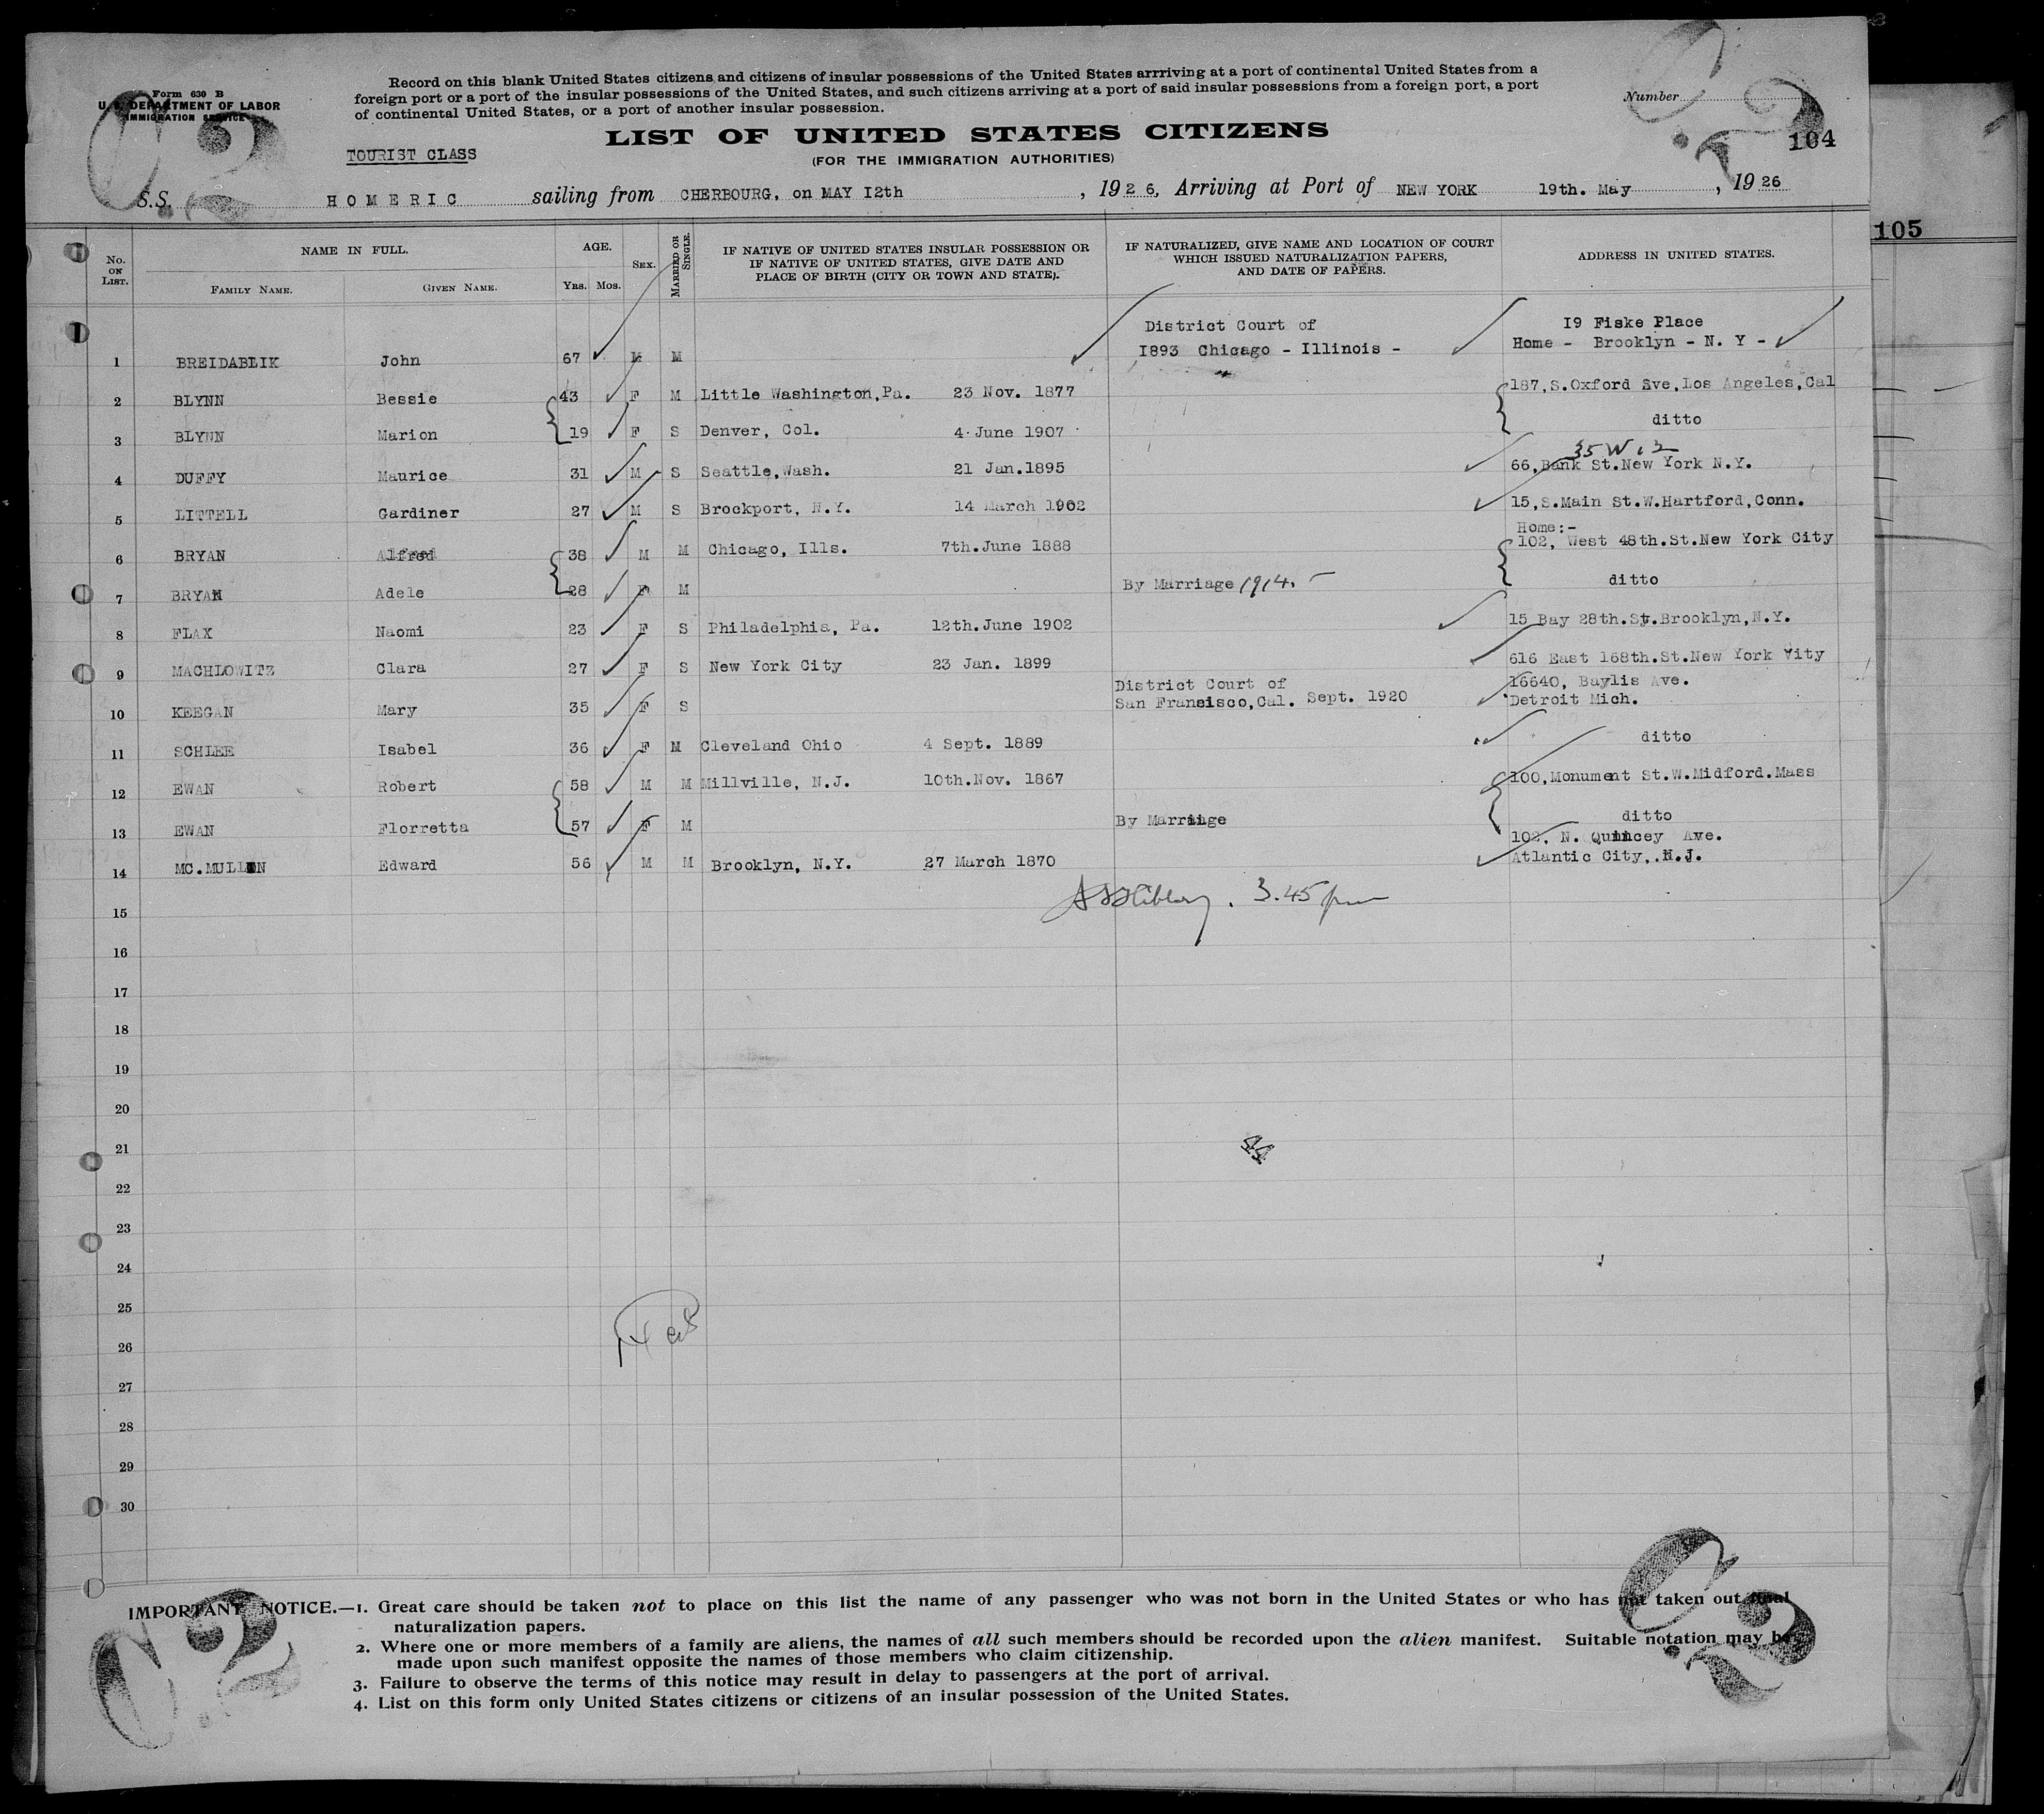 Form 630 B
U. S. DEPARTMENT OF LABOR
IMMIGRATION SERVICE
Record on this blank United States citizens and citizens of insular possessions of the United States arrriving at a port of continental United States from a
foreign port or a port of the insular possessions of the United States, and such citizens arriving at a port of said insular possessions from a foreign port, a port
of continental United States, or a port of another insular possession.
Number
104
105
LIST OF UNITED STATES CITIZENS
(FOR THE IMMIGRATION AUTHORITIES)
TOURIST CLASS
S.S. HOMERIC sailing from CHERBOURG, on MAY I2th , 192 6, Arriving at Port of NEW YORK 19th. May , 1926
No. ON LIST.
NAME IN FULL.
FAMILY NAME. GIVEN NAME.
AGE.
Yrs. Mos.
SEX.
MARRIED OR SINGLE.
IF NATIVE OF UNITED STATES INSULAR POSSESSION OR
IF NATIVE OF UNITED STATES, GIVE DATE AND
PLACE OF BIRTH (CITY OR TOWN AND STATE).
IF NATURALIZED, GIVE NAME AND LOCATION OF COURT
WHICH ISSUED NATURALIZATION PAPERS,
AND DATE OF PAPERS.
ADDRESS IN UNITED STATES.
District Court of I9 Fiske Place
1 BREIDABLIK John 67 M M I893 Chicago - Illinois - Home - Brooklyn - N. Y -
2 BLYNN Bessie 43 F M Little Washington,Pa. 23 Nov. 1877 187,S.Oxford Sve,Los Angeles,Cal
3 BLYNN Marion 19 F S Denver, Col. 4 June 1907 ditto
35 W 12
4 DUFFY Maurice 31 M S Seattle,Wash. 21 Jan.1895 66,Bank St.New York N.Y.
5 LITTELL Gardiner 27 M S Brockport, N.Y. 14 March 1902 15,S.Main St.W.Hartford,Conn.
Home:-
6 BRYAN Alfred 38 M M Chicago, Ills. 7th.June 1888 102, West 48th.St.New York City
7 BRYAN Adele 28 F M By Marriage 1914. ditto
8 FLAX Naomi 23 F S Philadelphia, Pa. 12th.June 1902 15 Bay 28th.St.Brooklyn,N.Y.
9 MACHLOWITZ Clara 27 F S New York City 23 Jan. 1899 616 East 168th.St.New York Vity
District Court of 16640, Baylis Ave.
10 KEEGAN Mary 35 F S San Francisco,Cal. Sept. 1920 Detroit Mich.
11 SCHLEE Isabel 36 F M Cleveland Ohio 4 Sept. 1889 ditto
12 EWAN Robert 58 M M Millville, N.J. 10th.Nov. 1867 100,Monument St.W.Midford.Mass
13 EWAN Florretta 57 F M By Marriage ditto
102, N. Quincey Ave.
14 MC.MULLEN Edward 56 M M Brooklyn, N.Y. 27 March 1870 Atlantic City, N.J.
3.45 pm
15
16
17
18
19
20
21
44
22
23
24
25
26
27
28
29
30
IMPORTANT NOTICE.—1. Great care should be taken not to place on this list the name of any passenger who was not born in the United States or who has not taken out final
naturalization papers.
2. Where one or more members of a family are aliens, the names of all such members should be recorded upon the alien manifest. Suitable notation may be
made upon such manifest opposite the names of those members who claim citizenship.
3. Failure to observe the terms of this notice may result in delay to passengers at the port of arrival.
4. List on this form only United States citizens or citizens of an insular possession of the United States.
C2
C2
C2
C2